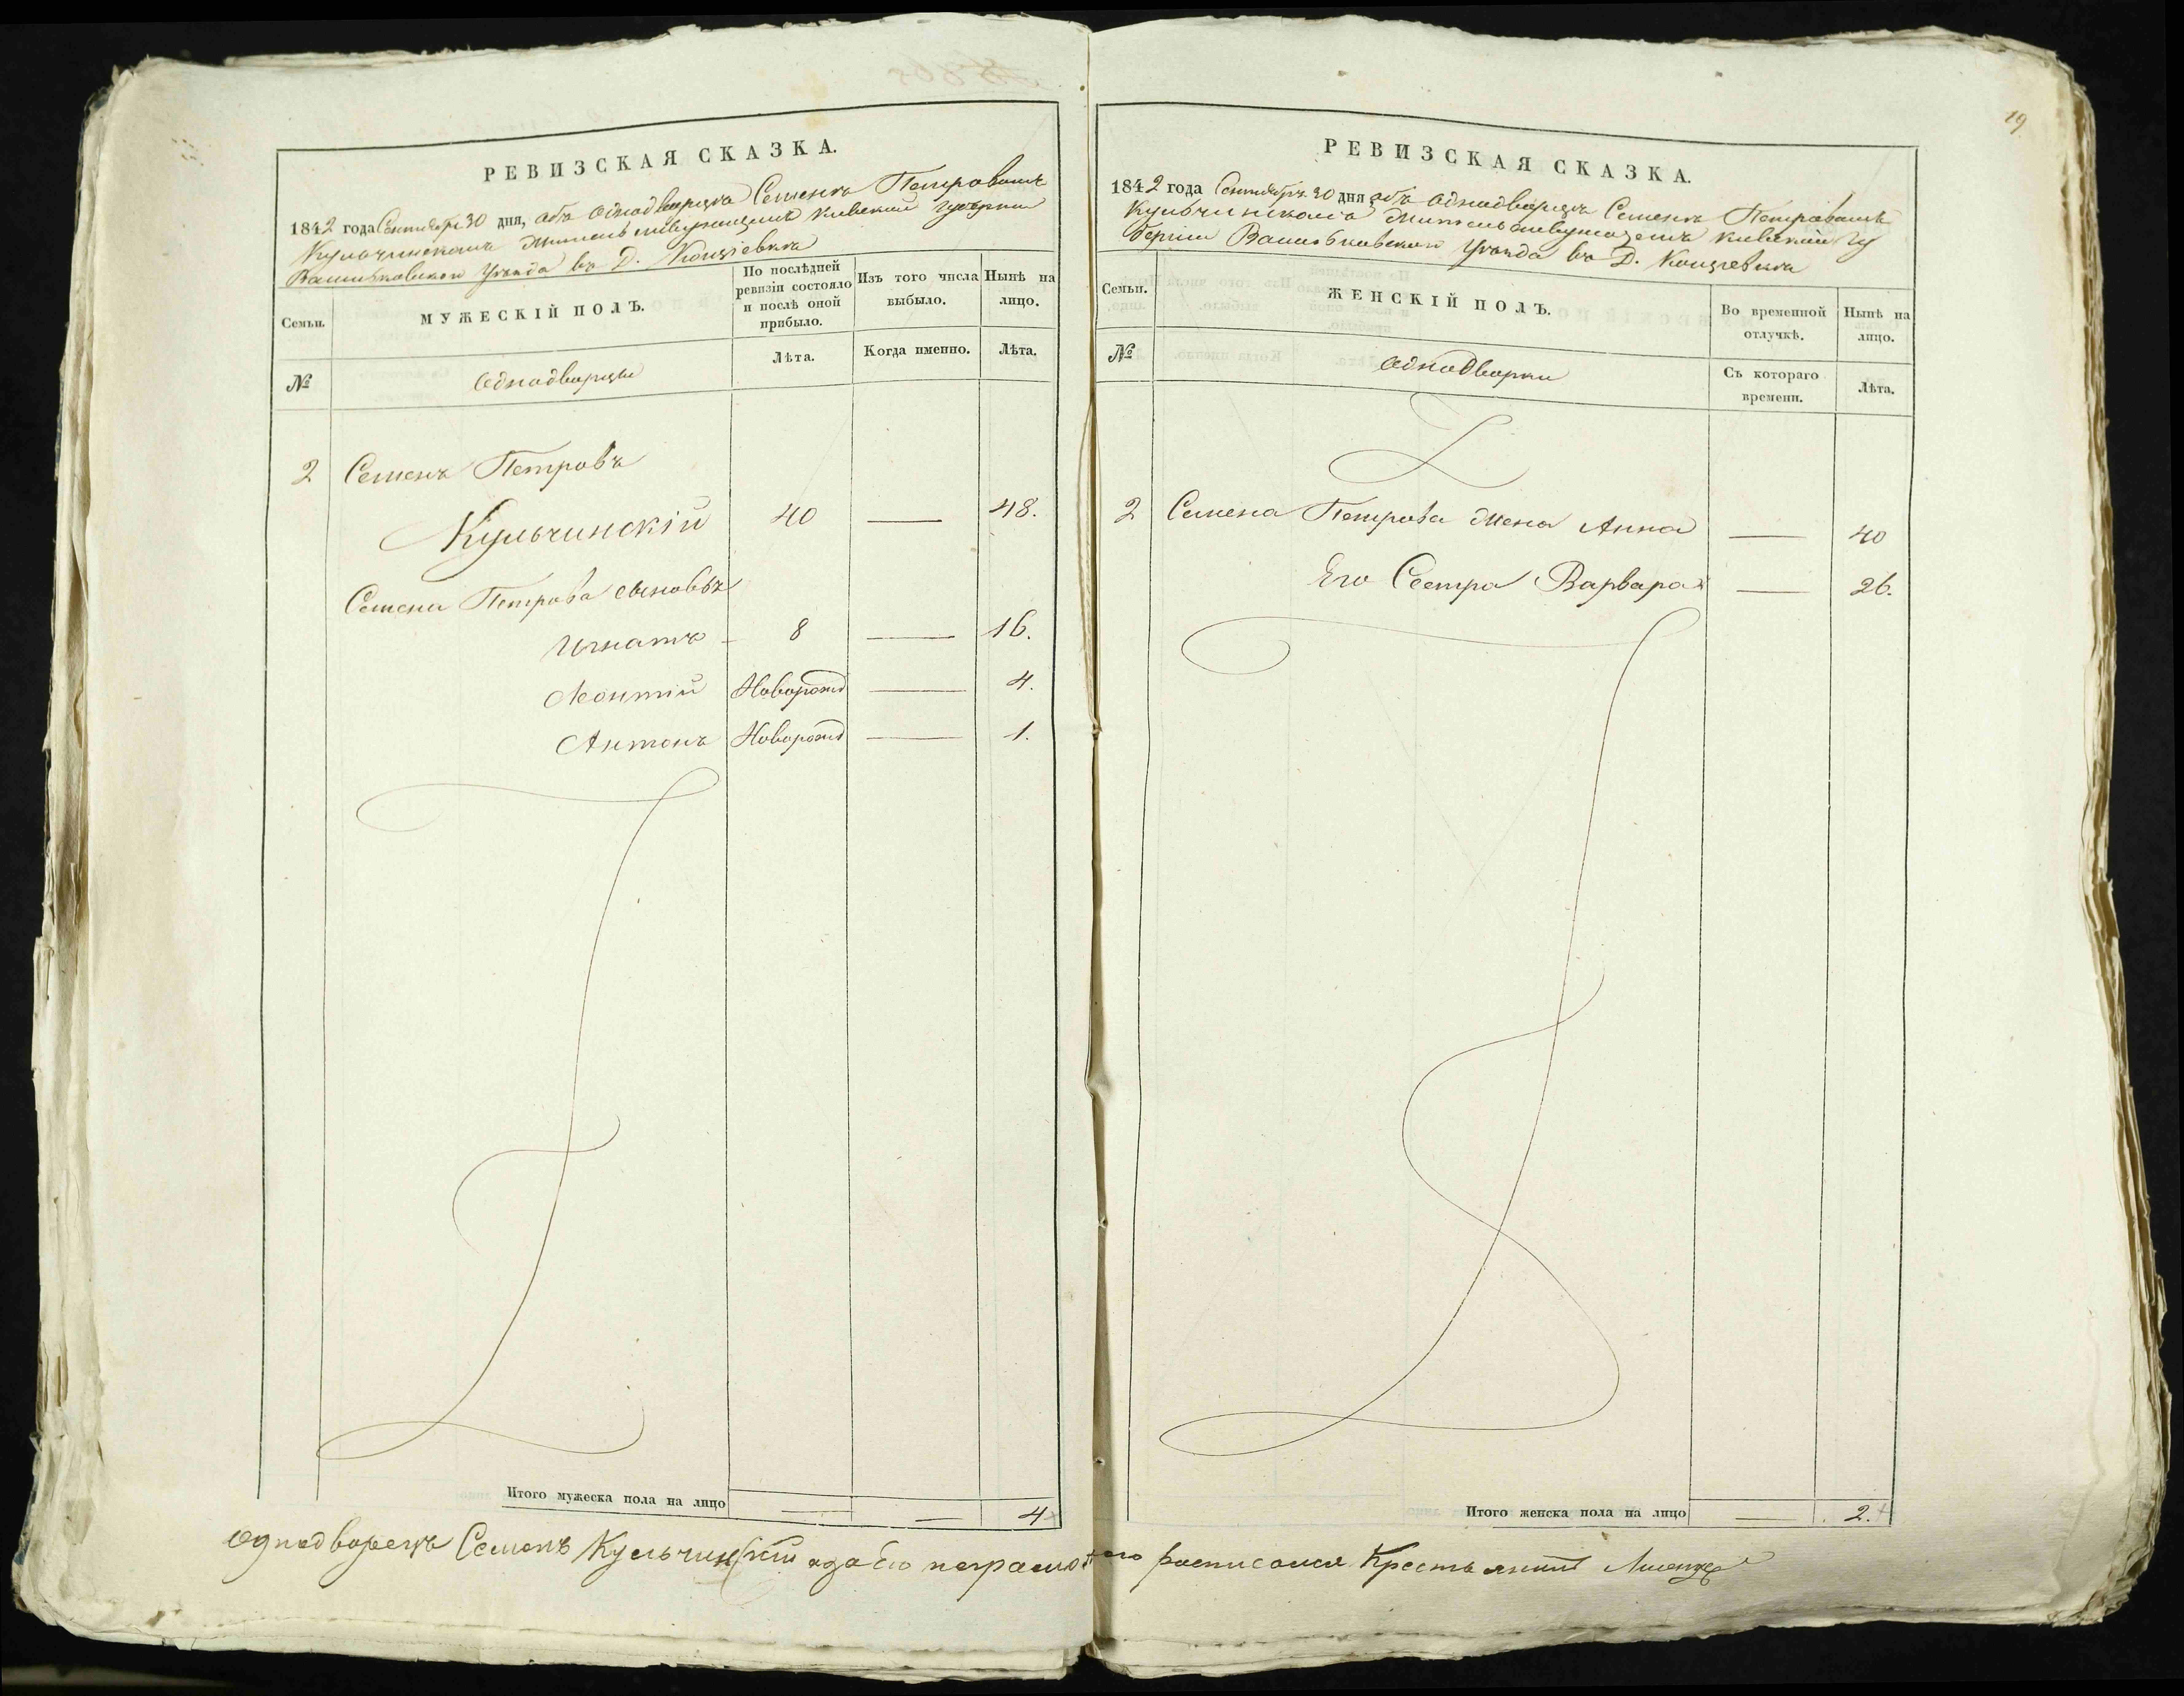 РЕВИЗСКАЯ СКАЗКА.
1842 года Сентября 30 дня, объ Однодворцѣ Семенѣ Петровомъ
Кульчинскомъ жительствующемъ Киевской губерніи
Васильковскаго Уѣзда въ Д.
Семьи.
МУЖЕСКІЙ ПОЛЪ.
По послѣдней ревизіи состояло и послѣ оной прибыло.
Изъ того числа выбыло.
Нынѣ на лицо.
№
Однодворцы
Лѣта.
Когда именно.
Лѣта.
2 Семенъ Петровъ
Кульчинскій 40 — 48.
Семена Петрова сыновья
Игнатъ - 8 — 16.
Леонтій Новорожд — 4.
Антонъ Новорожд — 1.
Итого мужеска пола на лицо — — 4
19
РЕВИЗСКАЯ СКАЗКА.
1842 года Сентября 30 дня, объ Однодворцѣ Семенѣ Петровомъ
Кульчинскомъ жительствующемъ Киевской Гу
берніи Васильковскаго Уѣзда въ Д.
Семьи.
ЖЕНСКІЙ ПОЛЪ.
Во временной отлучкѣ.
Нынѣ на лицо.
№
Однодворки
Съ котораго времени.
Лѣта.
2 Семена Петрова жена Анна — 40
Его Сестра Варвара — 26.
Итого женска пола на лицо — 2.
Однодворецъ Семенъ Кульчинскій а за Его неграмотного росписался Крестьянинъ